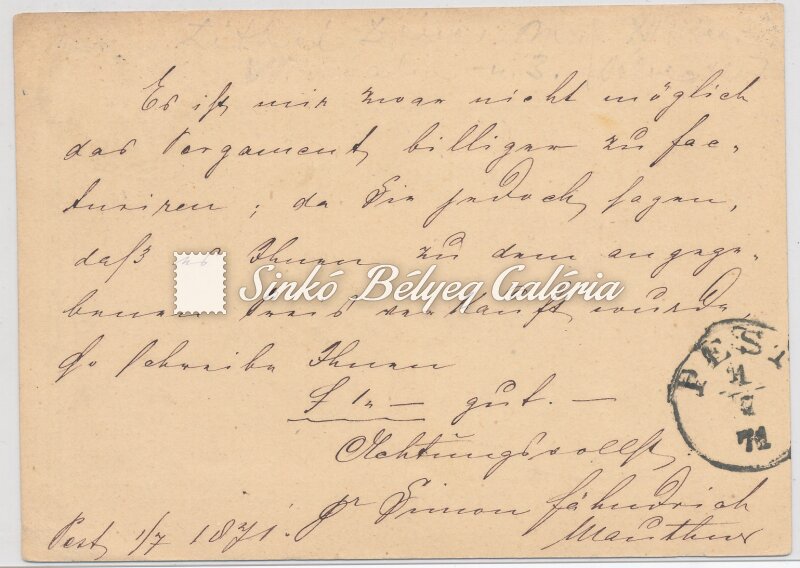 Es ist mir zwar nicht möglich
das Pergament billiger zu fac-
turiren; da Sie jedoch sagen,
daß es Ihnen zu dem angege-
benen Preis verkauft wurde,
so schreibe Ihnen
f 1x — gut. —
Achtungsvollst
pr Simon Fähndrich
Mauthner
Pest 1/7 1871.
PEST
71
Sinkó Bélyeg Galéria